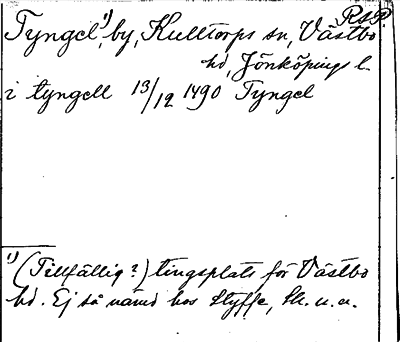 RAP.
Tyngel,¹⁾ by, Kulltorps sn, Västbo
hd, Jönköpings l.
i tyngell 13/12 1490 Tyngel
¹⁾ (Tillfällig?) tingsplats för Västbo
hd. Ej så nämd hos Styffe, Sk. u. u.